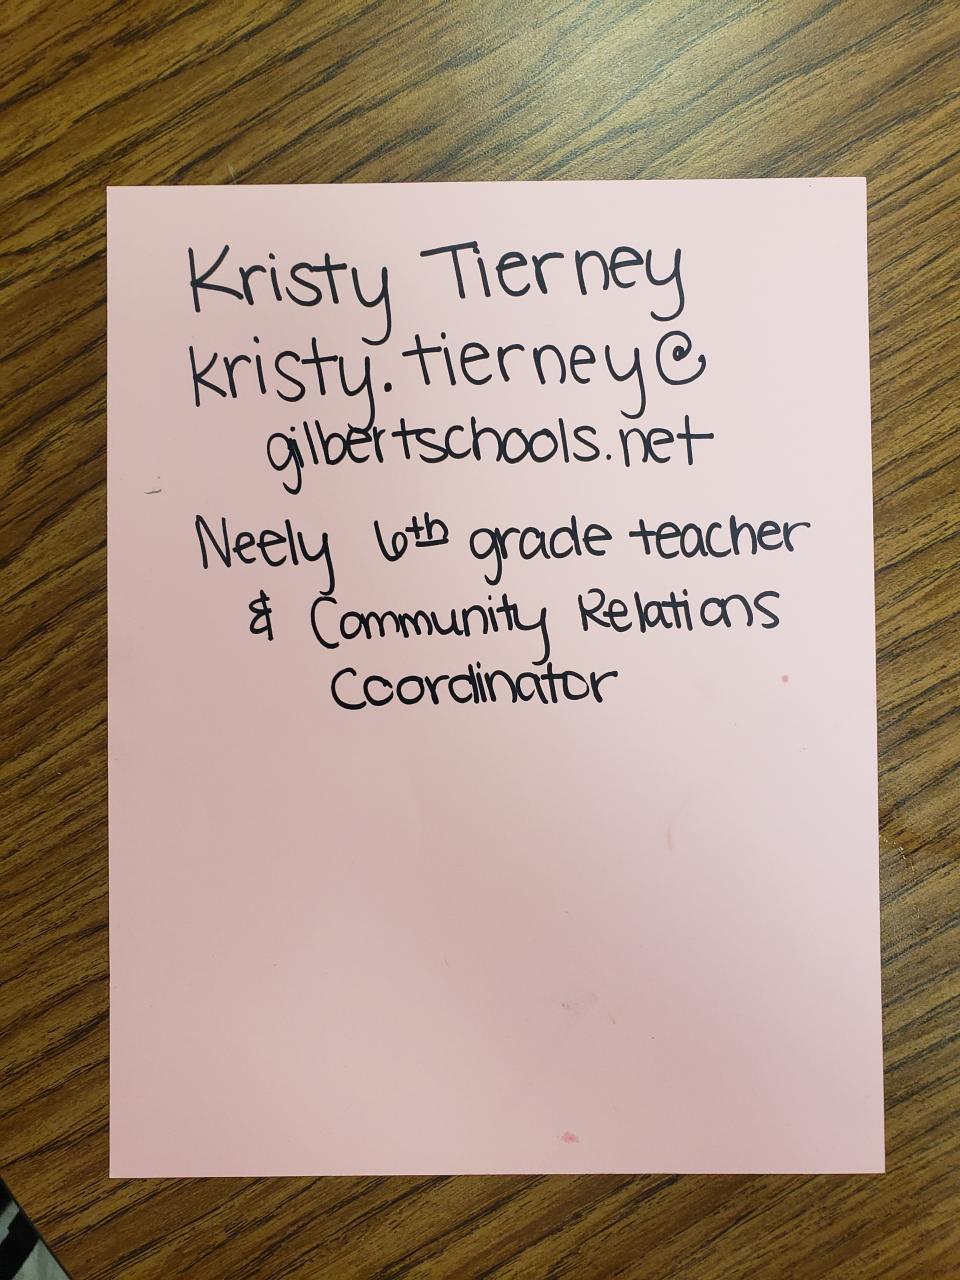 Kristy Tierney
kristy.tierney@
gilbertschools.net
Neely 6th grade teacher
& Community Relations
Coordinator